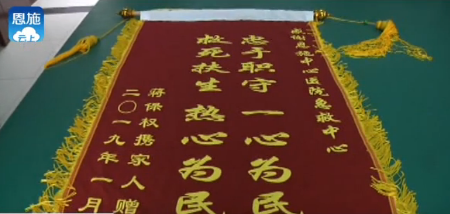 恩施
云上
感谢恩施中心医院急救中心
忠于职守 一心为民
救死扶生 热心为民
蒋保权携家人赠
二〇一九年一月